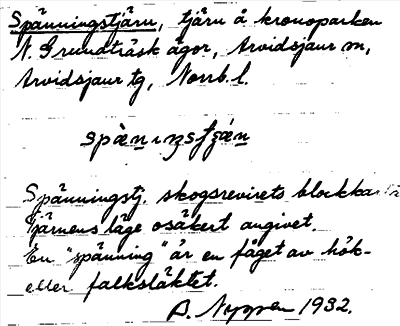 Spänningstjärn, tjärn å kronoparken
N. Grundträsk ägor, Arvidsjaur sn,
Arvidsjaur tg, Norrb. l.
Spänningstj. skogsrevirets blockka
Tjärnens läge osäkert angivet.
En "spänning" är en fågel av hök-
eller falksläktet.
B. 1932.